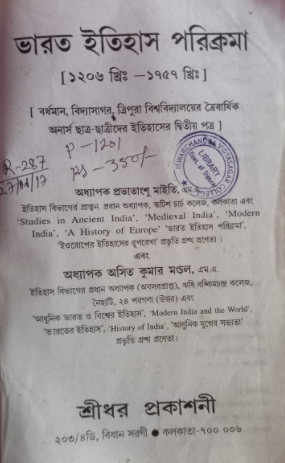 ভারত ইতিহাস পরিক্রমা
[ ১২০৬ খ্রিঃ —১৭৫৭ খ্রিঃ ]
[ বর্ধমান, বিদ্যাসাগর, ত্রিপুরা বিশ্ববিদ্যালয়ের ত্রৈবার্ষিক
অনার্স ছাত্র-ছাত্রীদের ইতিহাসের দ্বিতীয় পত্র ]
P-1201
R-287
27/04/17
Rs-350/-
LIBRARY
অধ্যাপক প্রভাতাংশু মাইতি, এম.এ.
ইতিহাস বিভাগের প্রাক্তন প্রধান অধ্যাপক, স্কটিশ চার্চ কলেজ, কলকাতা এবং
'Studies in Ancient India', 'Medieval India', 'Modern
India', 'A History of Europe' 'ভারত ইতিহাস পরিক্রমা',
'ইওরোপের ইতিহাসের রূপরেখা' প্রভৃতি গ্রন্থ প্রণেতা ।
এবং
অধ্যাপক অসিত কুমার মণ্ডল, এম.এ.
ইতিহাস বিভাগের প্রধান অধ্যাপক (অবসরপ্রাপ্ত), ঋষি বঙ্কিমচন্দ্র কলেজ,
নৈহাটি, ২৪ পরগণা (উত্তর) এবং
'আধুনিক ভারত ও বিশ্বের ইতিহাস', 'Modern India and the World',
'ভারতের ইতিহাস', 'History of India', 'আধুনিক যুগের সভ্যতা'
প্রভৃতি গ্রন্থ প্রণেতা।
শ্রীধর প্রকাশনী
২০৩/৪ডি, বিধান সরণী ● কলকাতা-৭০০ ০০৬